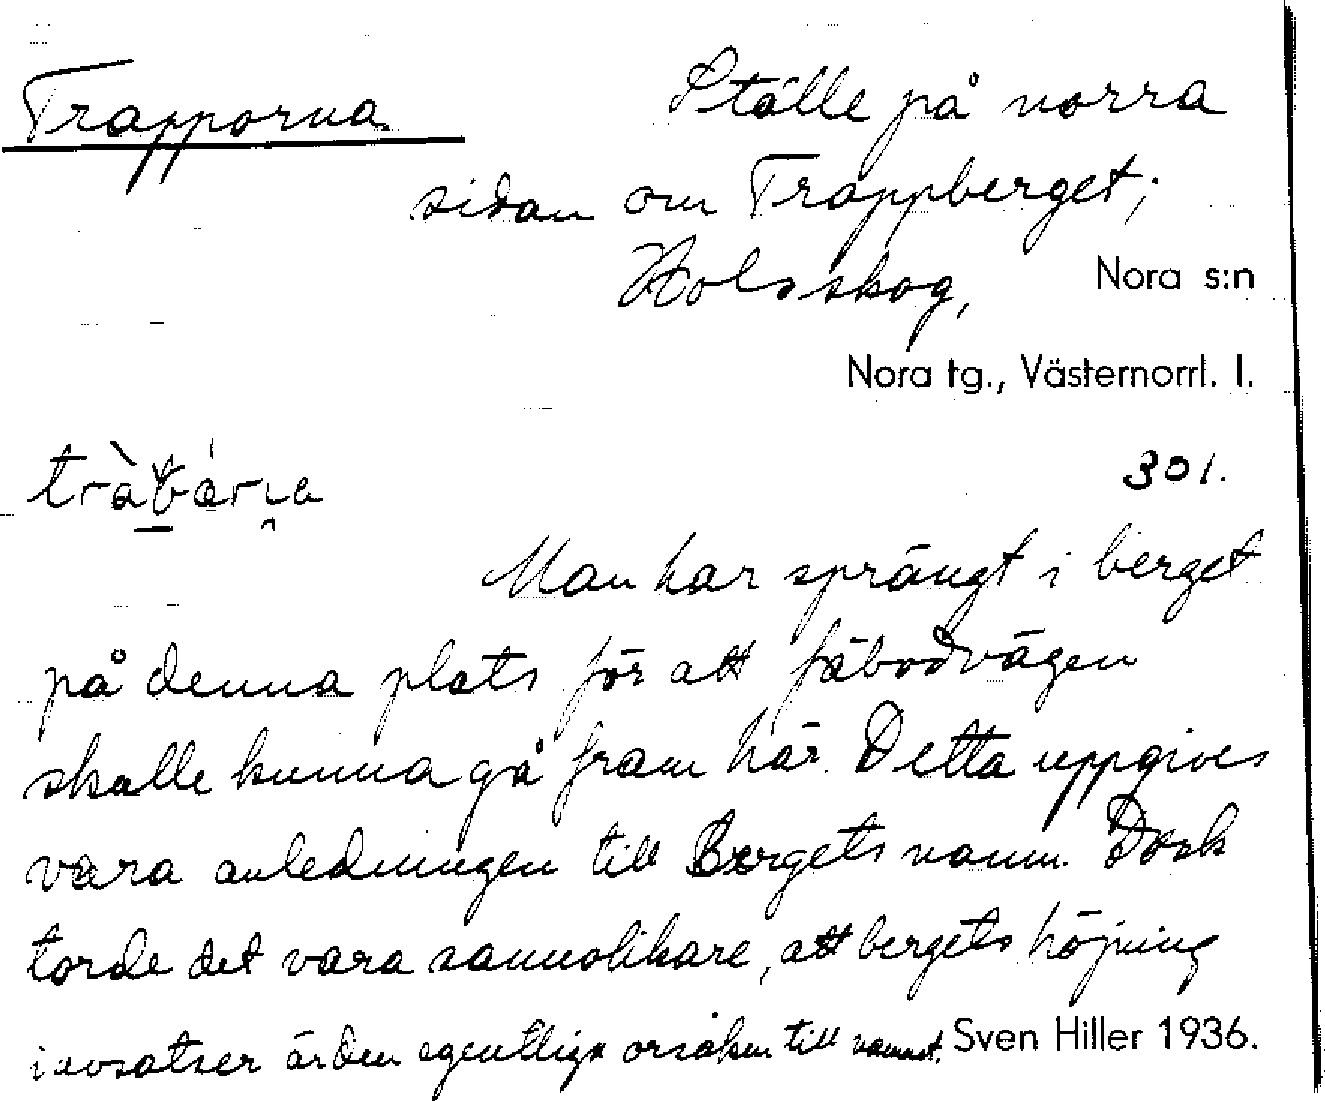 Trapporna Ställe på norra
sidan om Trappberget;
Holsskog, Nora s:n
Nora tg., Västernorrl. l.
301.
Man har sprängt i berget
på denna plats för att fäbodvägen
skalle kunna gå fram här. Detta uppgives
vara anledningen till Bergets namn. Dock
torde det vara sannolikare, att bergets höjning
i avsatser är den egentliga orsaken till namnet. Sven Hiller 1936.